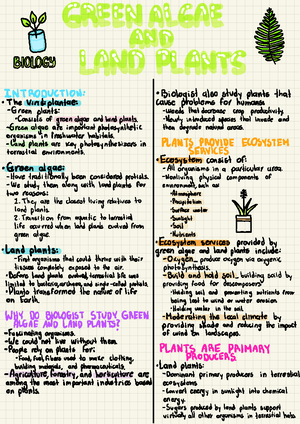 GREEN ALGAE
AND
LAND PLANTS
BIOLOGY
INTRODUCTION:
• The Viridiplantae:
- Green plants:
- Consists of green algae and land plants.
- Green algae are important photosynthetic
organisms in freshwater habitats.
- Land plants are key photosynthesizers in
terrestrial environments.
• Green algae:
- Have traditionally been considered protists.
- We study them along with land plants for
two reasons:
1. They are the closest living relatives to
land plants.
2. Transition from aquatic to terrestrial
life occurred when land plants evolved from
green algae.
• Land plants:
- First organisms that could thrive with their
tissues completely exposed to the air.
- Before land plants evolved, terrestrial life was
limited to bacteria, archaea, and single-celled protists.
• Plants transformed the nature of life
on Earth.
WHY DO BIOLOGIST STUDY GREEN
ALGAE AND LAND PLANTS?
- Fascinating organisms.
- We could not live without them.
- People rely on plants for:
- Food, fuel, fibers used to make clothing,
building materials, and pharmaceuticals.
- Agriculture, forestry, and horticulture are
among the most important industries based
on plants.
• Biologist also study plants that
cause problems for humans:
- Weeds that decrease crop productivity.
- Newly introduced species that invade and
then degrade natural areas.
PLANTS PROVIDE ECOSYSTEM
SERVICES
• Ecosystem consist of:
- All organisms in a particular area.
- Nonliving physical components of
environment, such as:
- Atmosphere
- Precipitation
- Surface water
- Sunlight
- Soil
- Nutrients
• Ecosystem services provided by
green algae and land plants include:
- Oxygen, produce oxygen via oxygenic
photosynthesis.
- Build and hold soil, building soil by
providing food for decomposers.
- Holding soil and preventing nutrients from
being lost to wind or water erosion.
- Holding water in the soil.
- Moderating the local climate by
providing shade and reducing the impact
of wind on landscapes.
PLANTS ARE PRIMARY
PRODUCERS
• Land plants:
- Dominant primary producers in terrestrial
ecosystems.
- Convert energy in sunlight into chemical
energy.
- Sugars produced by land plants support
virtually all other organisms in terrestrial